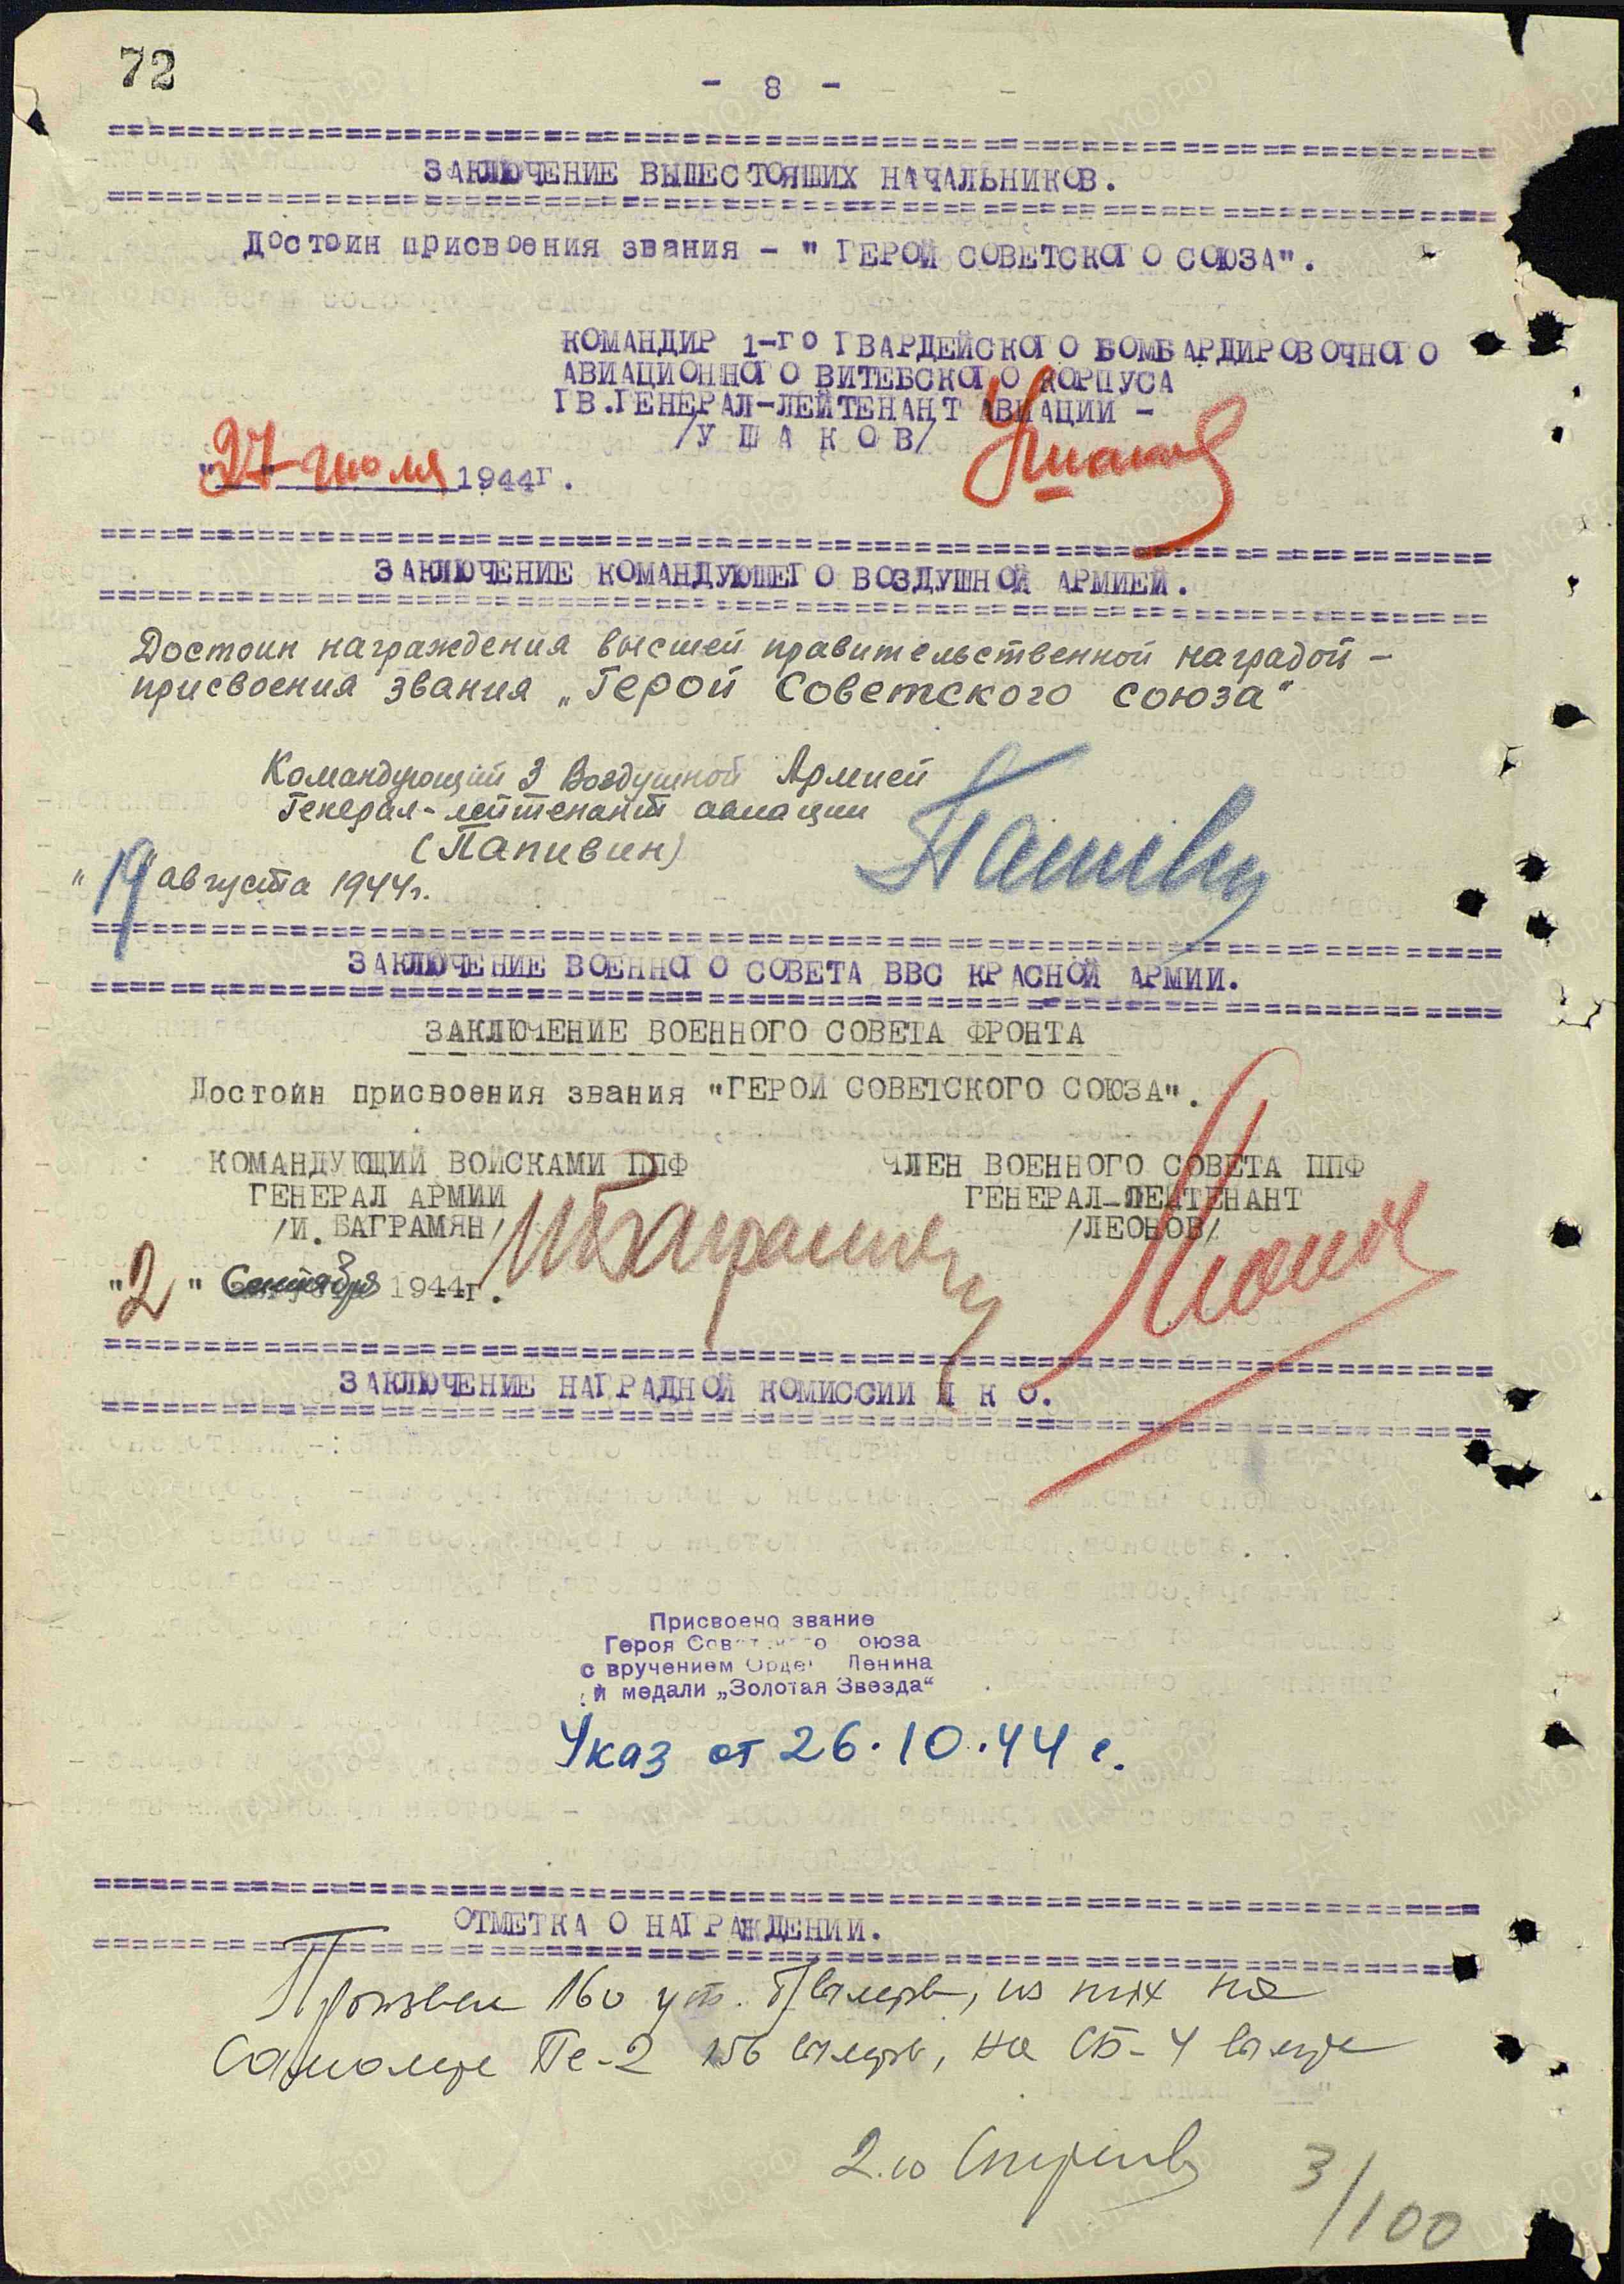 72
- 8 -
ЗАКЛЮЧЕНИЕ ВЫШЕСТОЯЩИХ НАЧАЛЬНИКОВ.
Достоин присвоения звания - "ГЕРОЙ СОВЕТСКОГО СОЮЗА".
КОМАНДИР 1-го ГВАРДЕЙСКОГО БОМБАРДИРОВОЧНОГО
АВИАЦИОННОГО ВИТЕБСКОГО КОРПУСА
ГВ.ГЕНЕРАЛ-ЛЕЙТЕНАНТ АВИАЦИИ -
/У Ш А К О В/ Ушаков
"27" июля 1944г.
ЗАКЛЮЧЕНИЕ КОМАНДУЮЩЕГО ВОЗДУШНОЙ АРМИЕЙ.
Достоин награждения высшей правительственной наградой -
присвоения звания „Герой Советского Союза"
Командующий 3 Воздушной Армией
Генерал-лейтенант авиации
(Папивин) Папивин
"19" августа 1944г.
ЗАКЛЮЧЕНИЕ ВОЕННОГО СОВЕТА ВВС КРАСНОЙ АРМИИ.
ЗАКЛЮЧЕНИЕ ВОЕННОГО СОВЕТА ФРОНТА
Достоин присвоения звания "ГЕРОЙ СОВЕТСКОГО СОЮЗА".
КОМАНДУЮЩИЙ ВОЙСКАМИ ППФ ЧЛЕН ВОЕННОГО СОВЕТА ППФ
ГЕНЕРАЛ АРМИИ ГЕНЕРАЛ-ЛЕЙТЕНАНТ
/И. БАГРАМЯН/ ИБаграмян /ЛЕОНОВ/ Леонов
"2" Сентября 1944г.
ЗАКЛЮЧЕНИЕ НАГРАДНОЙ КОМИССИИ Н К О.
Присвоено звание
Героя Советского Союза
с вручением Ордена Ленина
и медали „Золотая Звезда"
Указ от 26.10.44 г.
ОТМЕТКА О НАГРАЖДЕНИИ.
Произвел 160 вылетов, из них на
самолете Пе-2 156 вылетов, на СБ-4 вылета
3/100